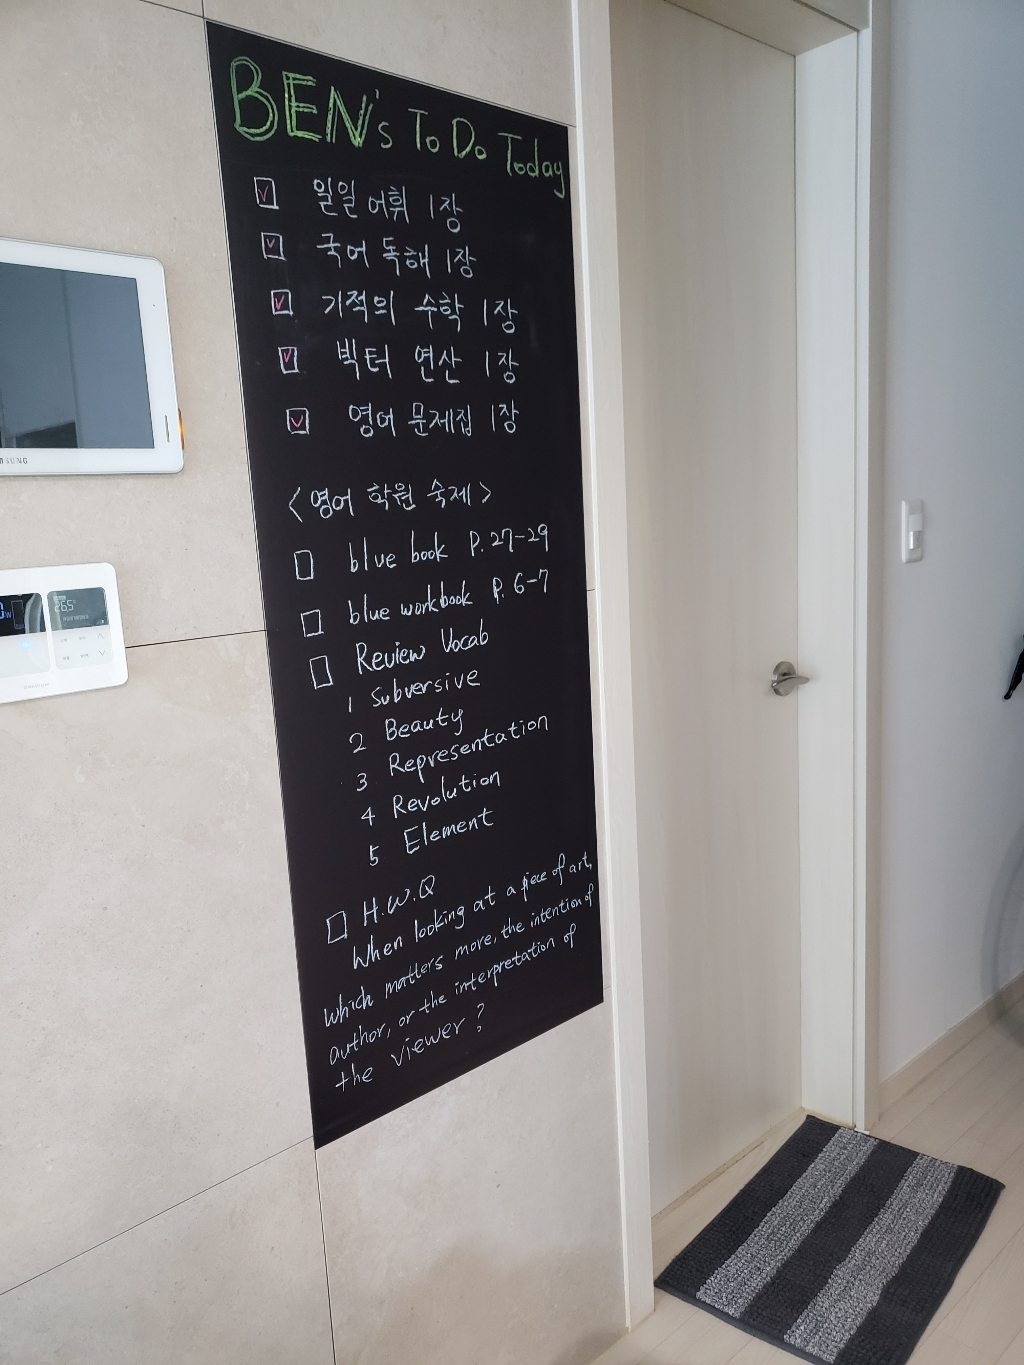 BEN's To Do Today
일일 어휘 1장
국어 독해 1장
기적의 수학 1장
빅터 연산 1장
영어 문제집 1장
<영어 학원 숙제>
blue book P.27-29
blue workbook p. 6-7
Review Vocab
1 Subversive
2 Beauty
3 Representation
4 Revolution
5 Element
H.W.Q
When looking at a piece of art,
which matters more, the intention of
author, or the interpretation of
the viewer?
SAMSUNG
26.5°